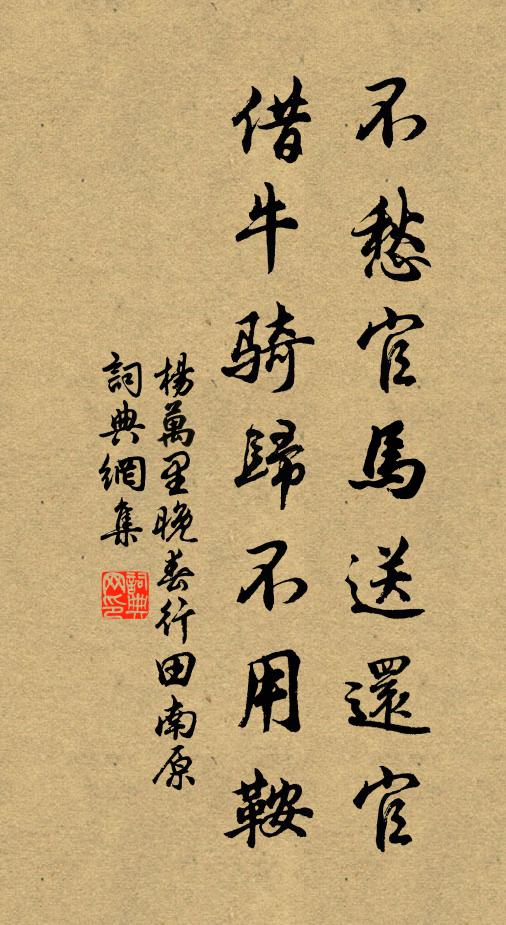 不愁官馬送還官
借牛騎歸不用鞍
楊萬里晚春行田南原
詞典網集
詞典网印